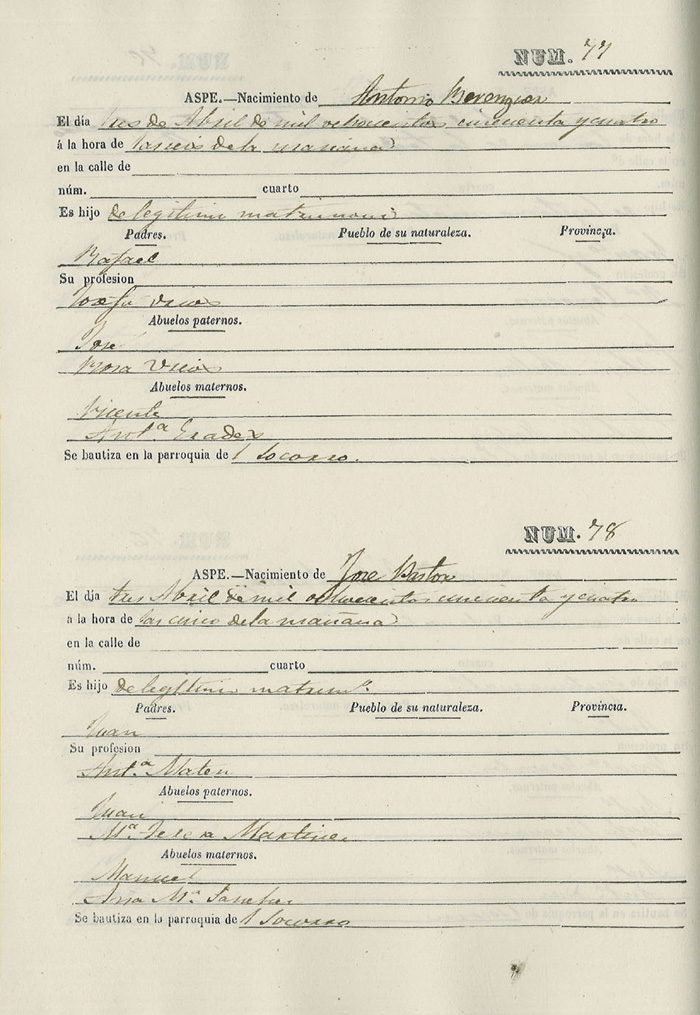 NUM. 77
ASPE.—Nacimiento de Antonio Berenguer
El día tres de Abril de mil ochocientos cincuenta y cuatro
á la hora de las seis de la mañana
en la calle de
núm. cuarto
Es hijo de legitimo matrimonio
Padres. Pueblo de su naturaleza. Provincia.
Rafael
Su profesion
Josefa
Abuelos paternos.
José
Rosa
Abuelos maternos.
Vicente
Ant.ª
Se bautiza en la parroquia de Socorro.
NUM. 78
ASPE.—Nacimiento de Jose Pastor
El día tres Abril de mil ochocientos cincuenta y cuatro
á la hora de las cinco de la mañana
en la calle de
núm. cuarto
Es hijo de legitimo matrim.º
Padres. Pueblo de su naturaleza. Provincia.
Juan
Su profesion
Ant.ª Mateu
Abuelos paternos.
Juan
M.ª Teresa Martinez
Abuelos maternos.
Manuel
Ana M.ª Sanchez
Se bautiza en la parroquia de Socorro